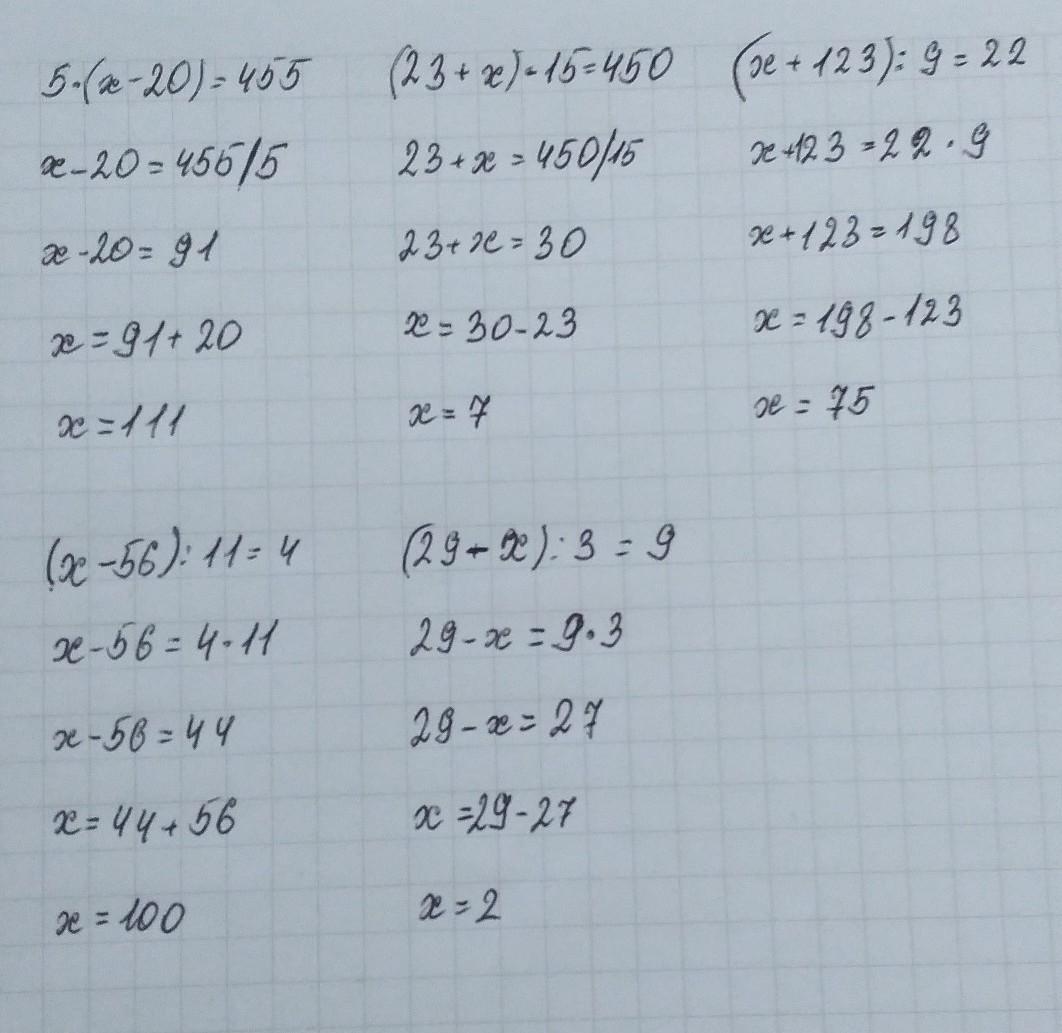 5·(x-20)=455
x-20=455/5
x-20=91
x=91+20
x=111
(23+x)·15=450
23+x=450/15
23+x=30
x=30-23
x=7
(x+123):9=22
x+123=22·9
x+123=198
x=198-123
x=75
(x-56):11=4
x-56=4·11
x-56=44
x=44+56
x=100
(29-x):3=9
29-x=9·3
29-x=27
x=29-27
x=2